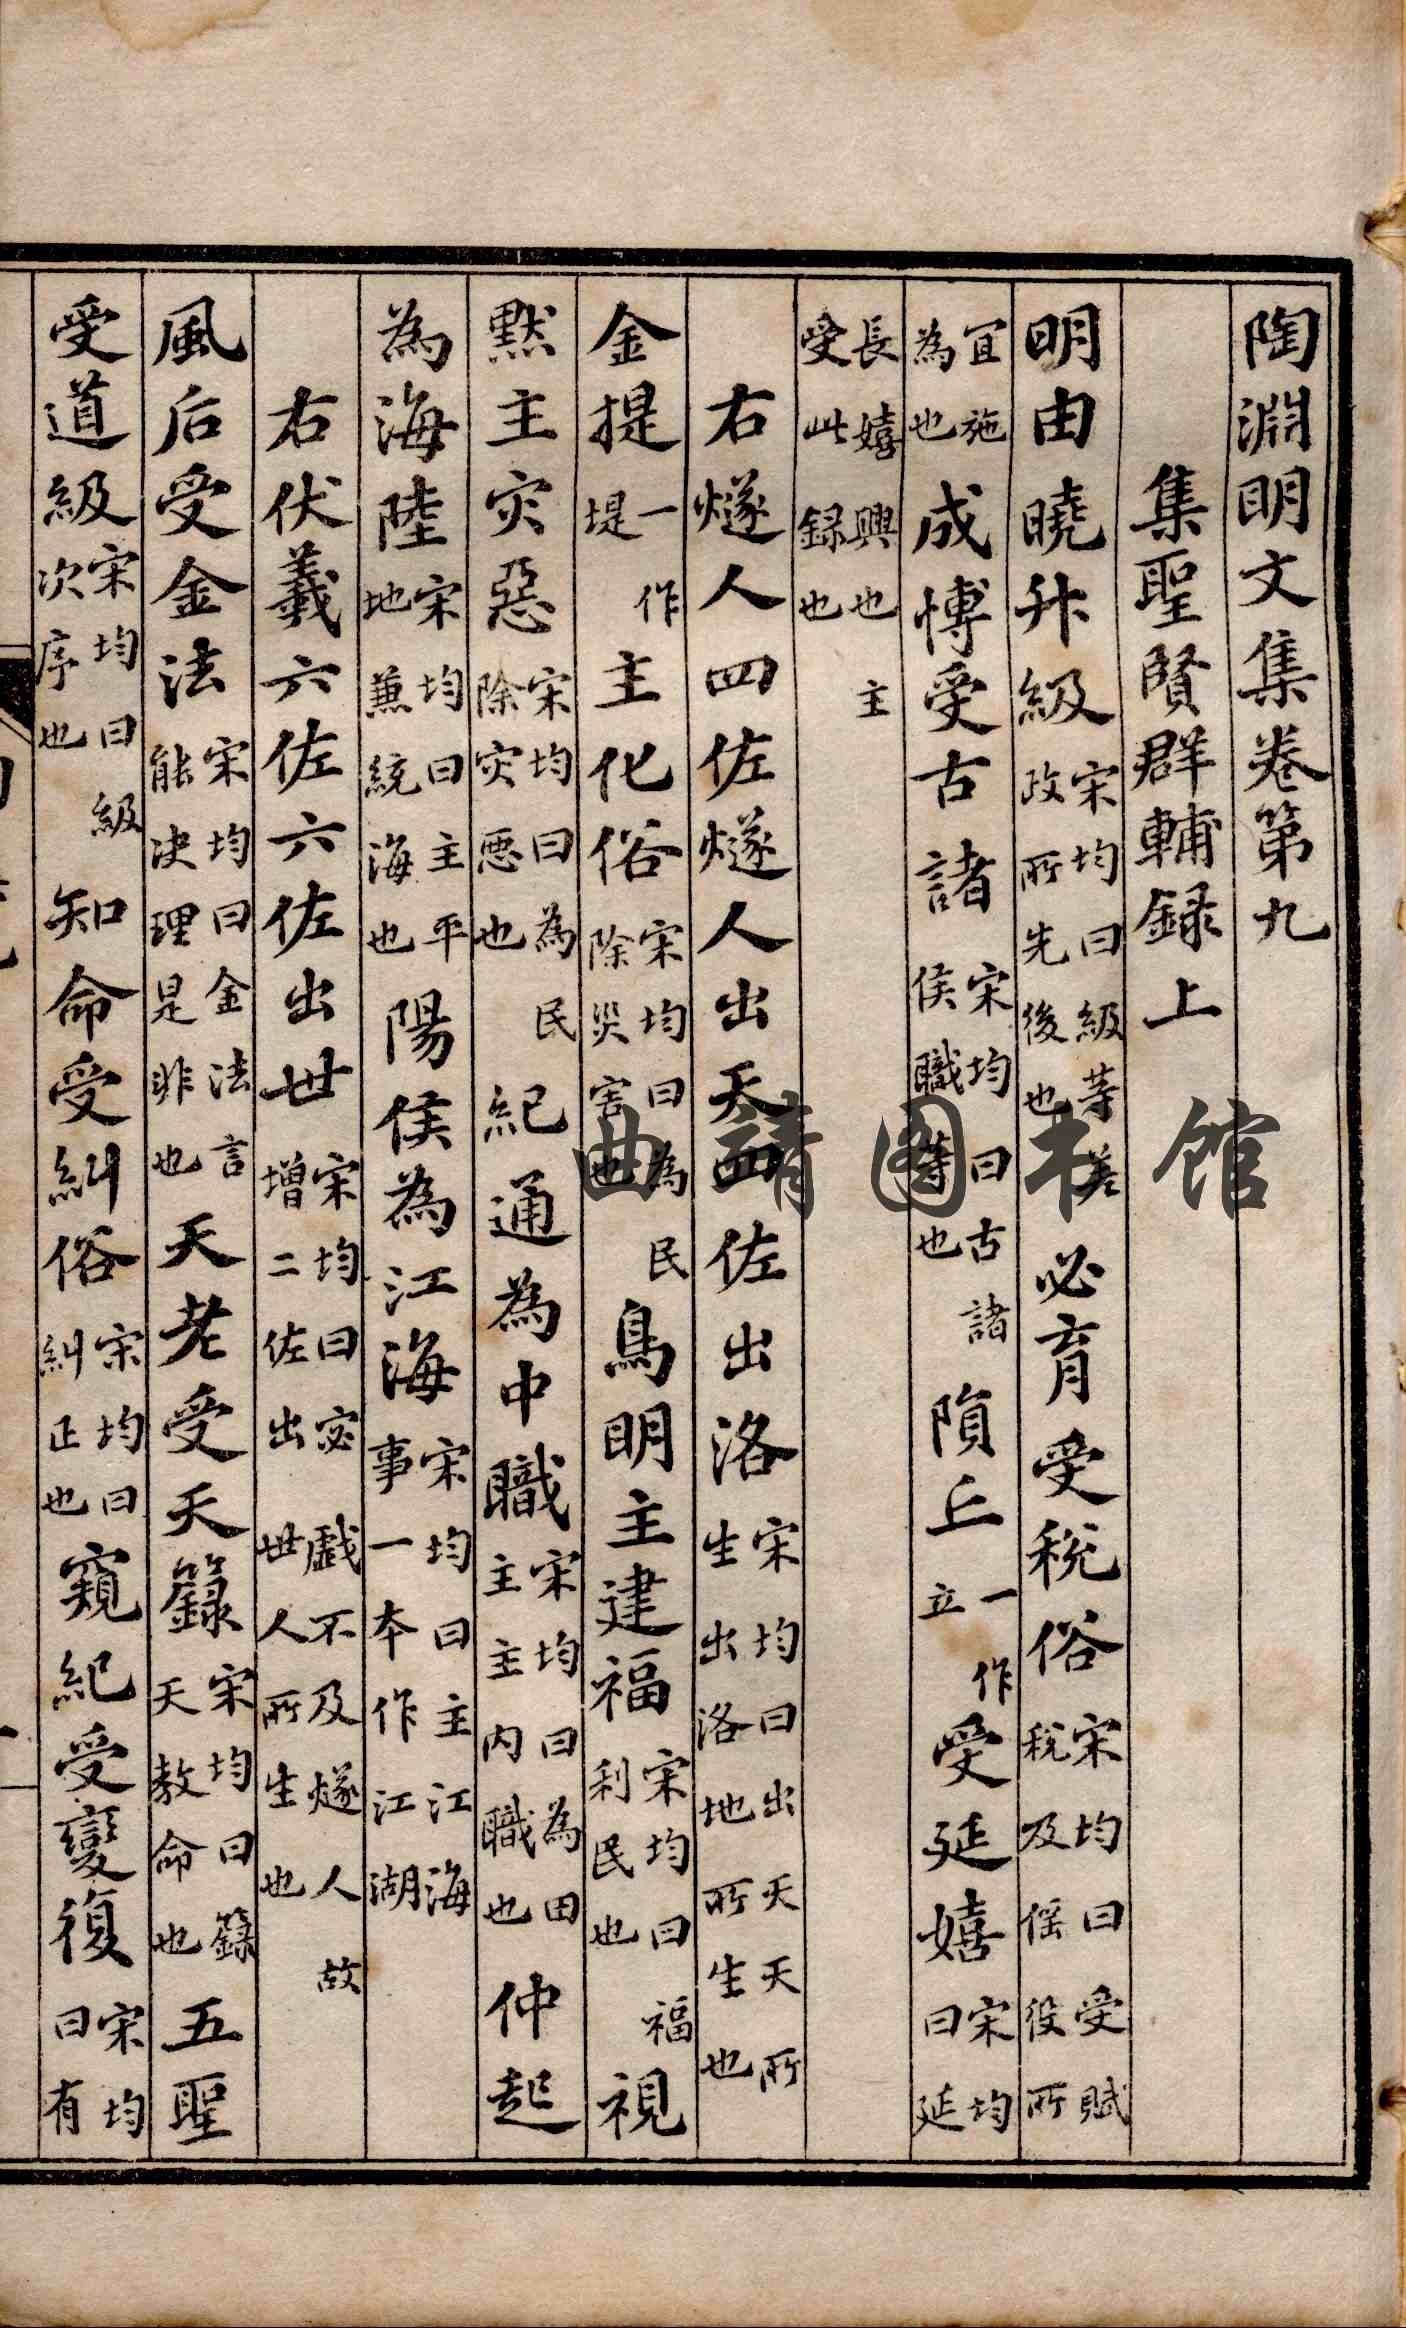 陶淵明文集卷第九
集聖賢群輔録上
明由曉升級宋均曰級等差政所先後也必育受稅俗宋均曰受賦稅及徭役所
宜施為也成博受古諸宋均曰古諸侯職等也隕丘一作立受延嬉宋均曰延
長嬉興也主受此録也
右燧人四佐燧人出天四佐出洛宋均曰出天天所生出洛地所生也
金提一作堤主化俗宋均曰為民除災害也鳥明主建福宋均曰福利民也視
黙主灾惡宋均曰為民除灾惡也紀通為中職宋均曰為田主主内職也仲起
為海陸宋均曰主平地兼統海也陽侯為江海宋均曰主江海事一本作江湖
右伏羲六佐六佐出世宋均曰宓戲不及燧人故增二佐出世人所生也
風后受金法宋均曰金法言能决理是非也天老受天籙宋均曰籙天教命也五聖
受道級宋均曰級次序也知命受糾俗宋均曰糾正也窺紀受變復宋均曰有
曲靖图书馆